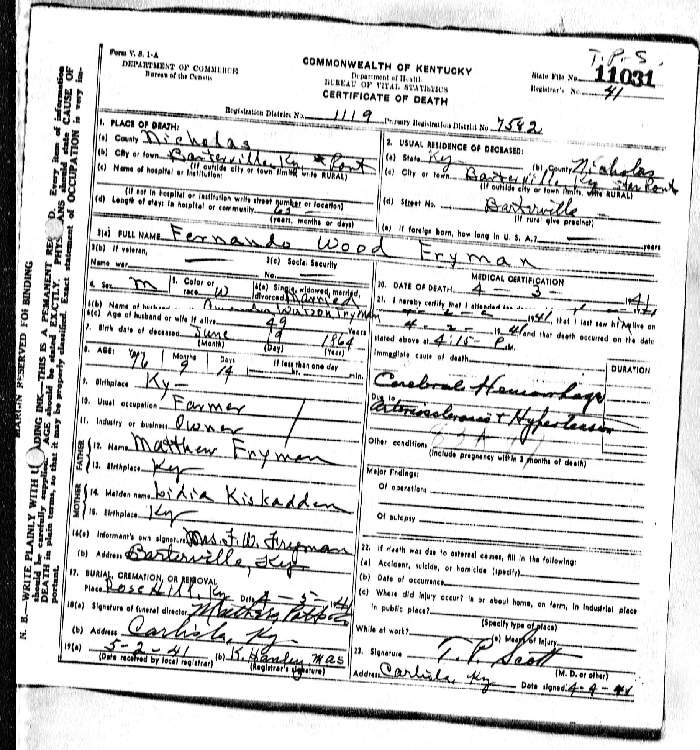 T. P. S.
Form V. S. 1-A
DEPARTMENT OF COMMERCE
Bureau of the Census
COMMONWEALTH OF KENTUCKY
Department of Health
BUREAU OF VITAL STATISTICS
CERTIFICATE OF DEATH
State File No. 11031
Registrar's No. 41
Registration District No. 1119 Primary Registration District No. 7542
1. PLACE OF DEATH:
(a) County Nicholas
(b) City or town Barterville, Ky
(If outside city or town limits, write RURAL)
(c) Name of hospital or institution:
(If not in hospital or institution write street number or location)
(d) Length of stay: in hospital or community
(years, months or days)
2. USUAL RESIDENCE OF DECEASED:
(a) State Ky (b) County Nicholas
(c) City or town Barterville, Ky
(If outside city or town limits, write RURAL)
(d) Street No. Barterville
(If rural give precinct)
(e) If foreign born, how long in U. S. A.? years
3(a) FULL NAME Fernando Wood Fryman
3(b) If veteran,
Name war
3(c) Social Security
No.
4. Sex M
5. Color or
race W
6(a) Single, widowed, married,
divorced Married
6(b) Name of husband Watson Fryman
6(c) Age of husband or wife if alive 49 Years
7. Birth date of deceased June 19 1864
(Month) (Day) (Year)
8. AGE: 76 Months 9 Days 14 If less than one day
hr. min.
9. Birthplace Ky
10. Usual occupation Farmer
11. Industry or business Owner
FATHER
12. Name Matthew Fryman
13. Birthplace Ky
MOTHER
14. Maiden name Lidia Kiskadden
15. Birthplace Ky
16(a) Informant's own signature Mrs. F. W. Fryman
(b) Address Barterville, Ky
17. BURIAL, CREMATION, OR REMOVAL
Place Rose Hill, Ky Date 4-5-1941
18(a) Signature of funeral director
(b) Address Carlisle, Ky.
19(a) 5-2-41 (b) K. Hanley Mas
(Date received by local registrar) (Registrar's signature)
MEDICAL CERTIFICATION
20. DATE OF DEATH 4 3 1941
21. I hereby certify that I attended
4-2-1941, that I last saw h alive on
4-2-1941 and that death occurred on the date
stated above at 4:15 P. M.
Immediate cause of death
DURATION
Cerebral Hemorrhage
Due to
Arteriosclerosis + Hypertension
Other condition
(Include pregnancy within 3 months of death)
Major Findings:
Of operations
Of autopsy
22. If death was due to external causes, fill in the following:
(a) Accident, suicide, or homicide (specify)
(b) Date of occurrence
(c) Where did injury occur? in or about home, on farm, in industrial place
in public place?
(Specify type of place)
While at work? (e) Means of injury
23. Signature T. P. Scott
(M. D. or other)
Address Carlisle, Ky Date signed 4-4-41
MARGIN RESERVED FOR BINDING